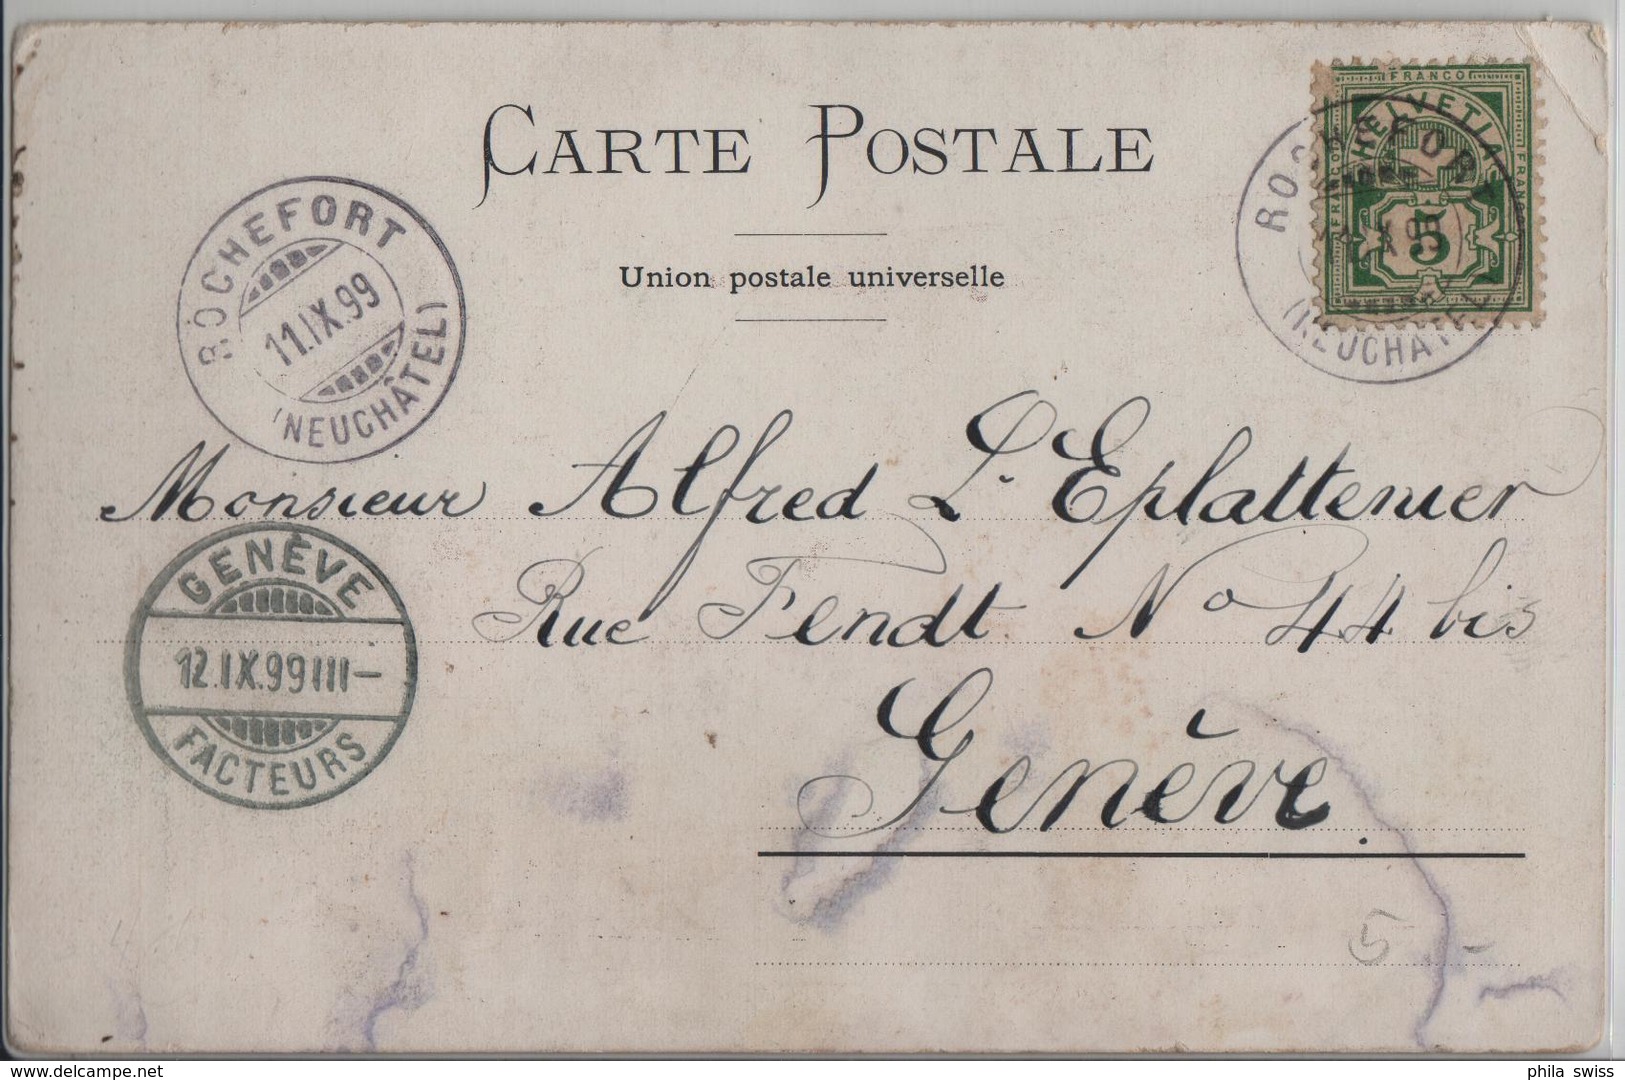 CARTE POSTALE
Union postale universelle
ROCHEFORT
11.IX.99
(NEUCHÂTEL)
FRANCO
HELVETIA
FRANCO
FRANCO
5
ROCHEFORT
(NEUCHÂTEL)
Monsieur Alfred L'Eplattenier
Rue Fendt No 44 bis
Genève
GENÈVE
12.IX.99 III-
FACTEURS
5 -
delcampe.net
phila swiss